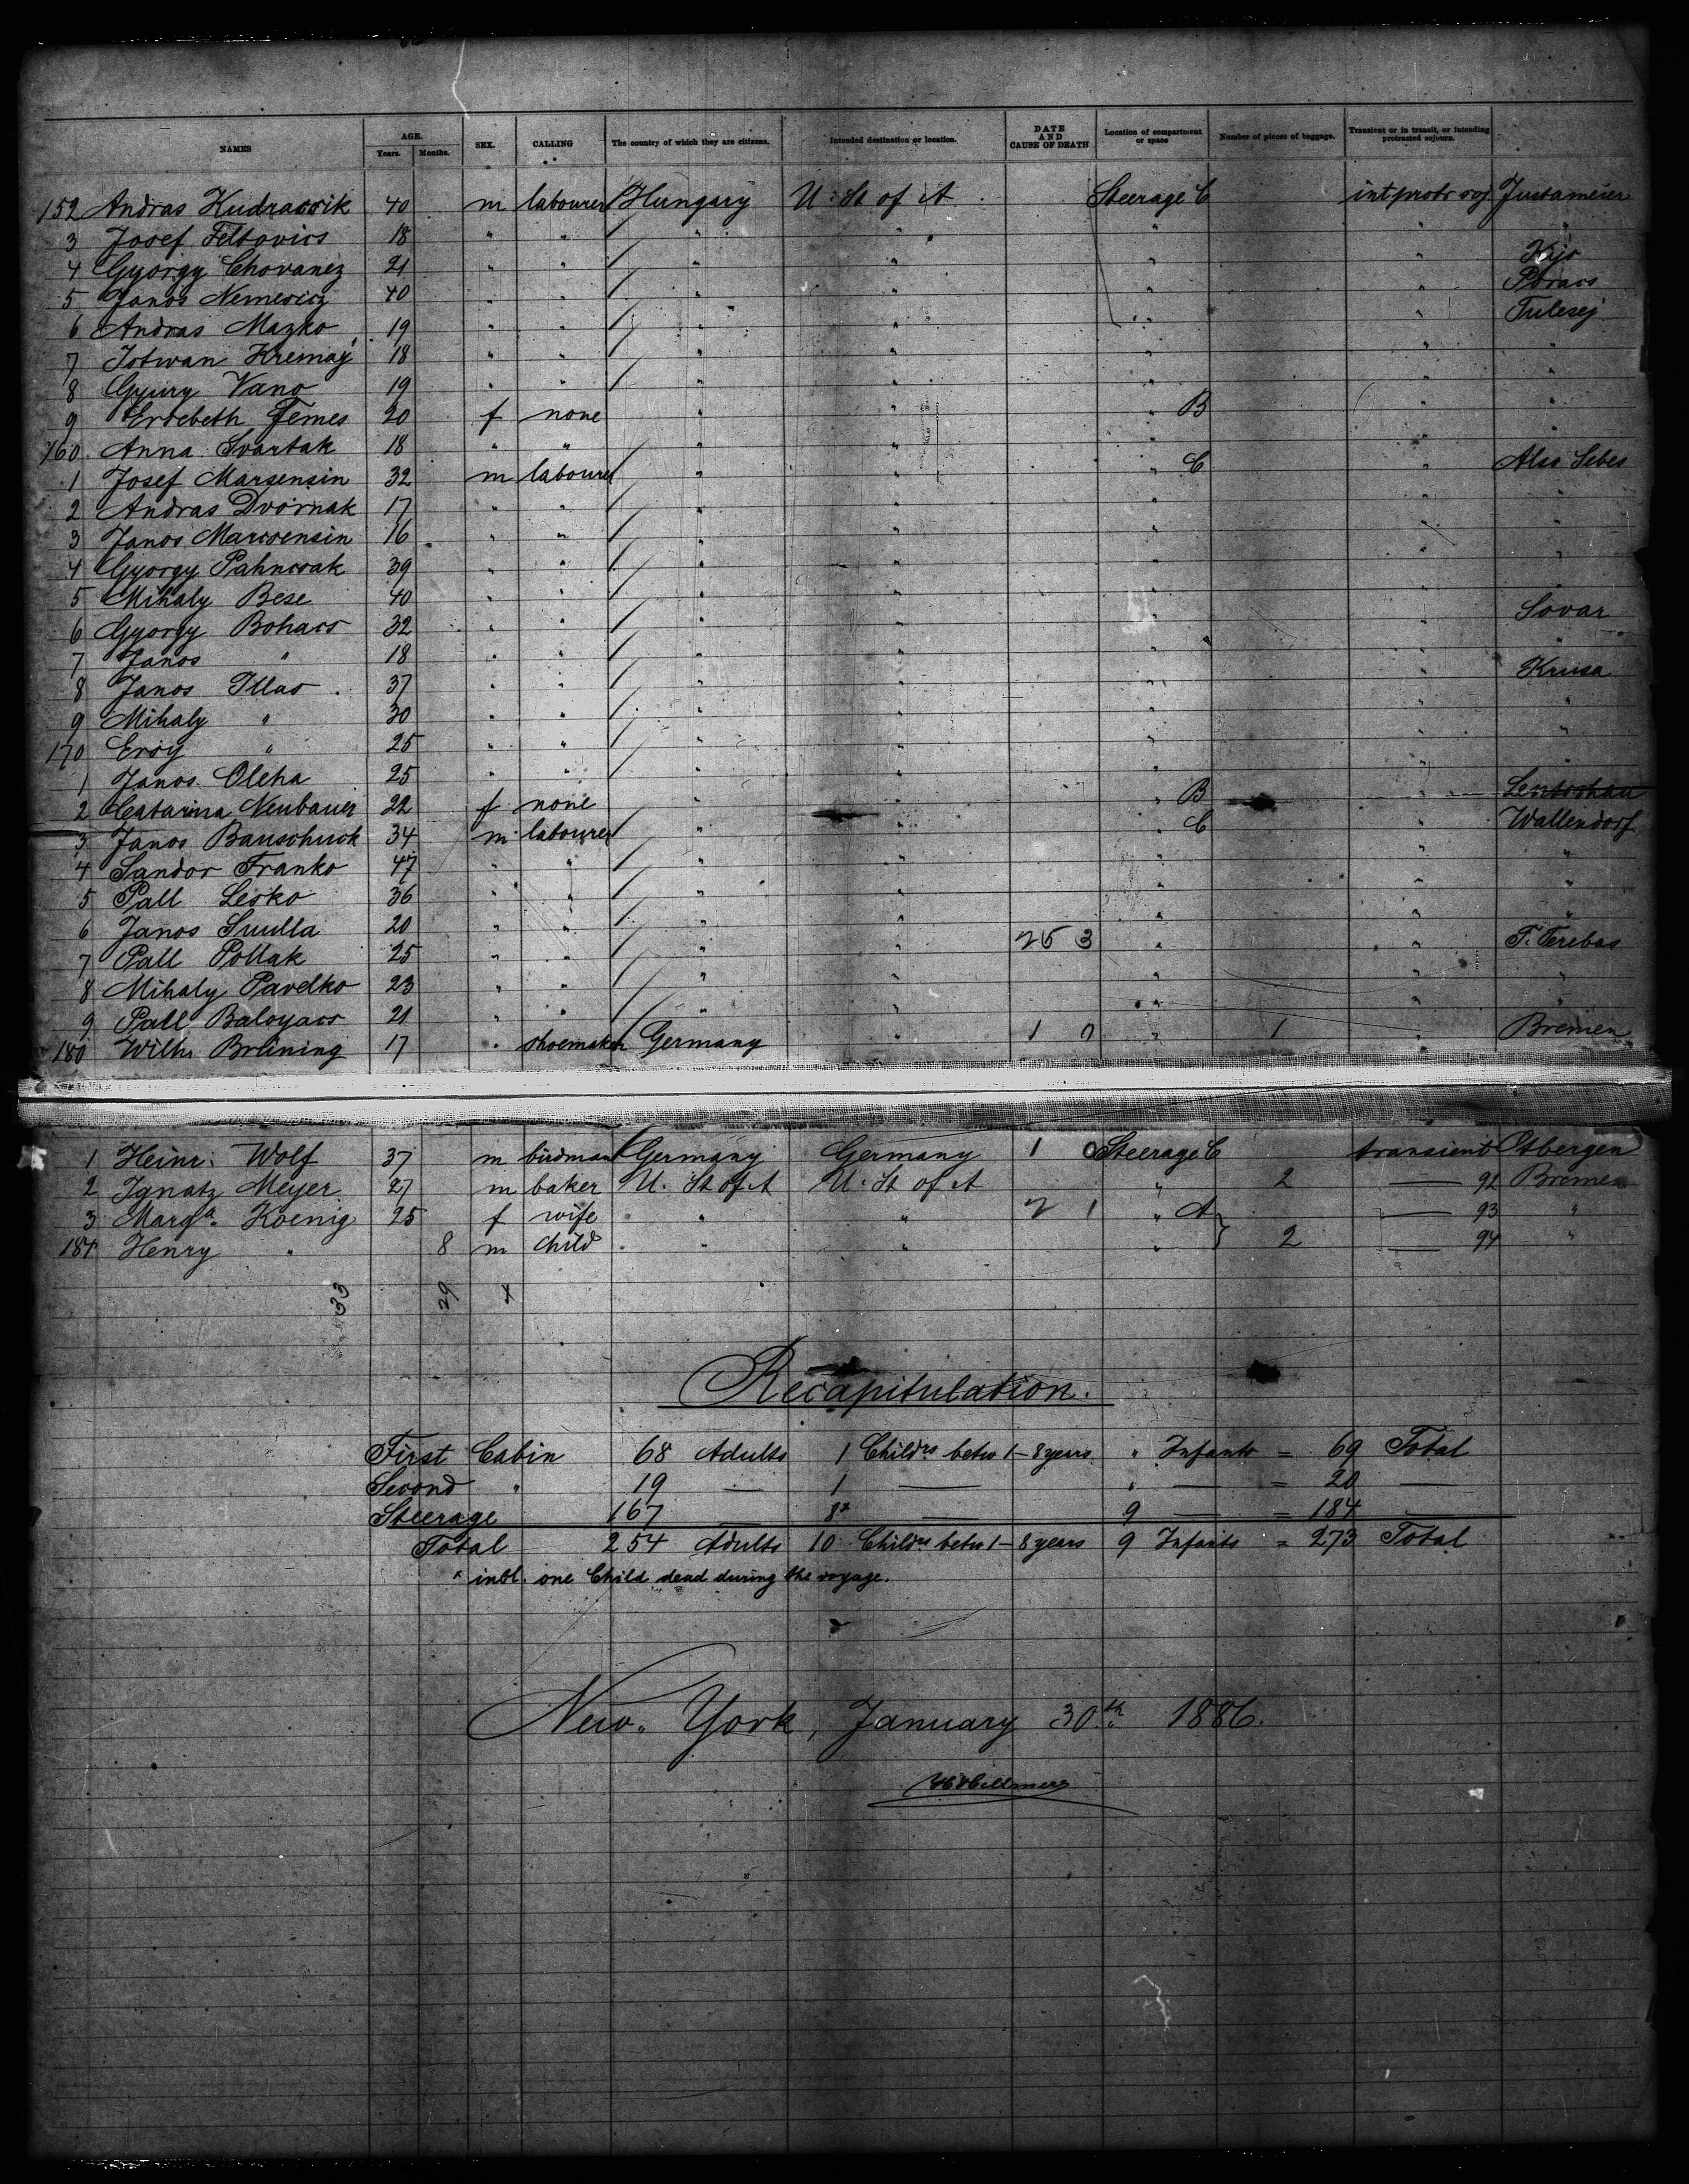 NAMES AGE. Years. Months. SEX. CALLING The country of which they are citizens. Intended destination or location. DATE AND CAUSE OF DEATH Location of compartment or space Number of pieces of baggage. Transient or in transit, or intending protracted sojourn.
152 Andras Kudracsik 40 m labourer Hungary U. St of A Steerage C int protr soj.
3 Josef Feltovics 18 " " " " " "
4 Gyorgy Chovanez 21 " " " " " "
5 Janos 40 " " " " " " Poracs
6 Andras Mazko 19 " " " " " " Tulesej
7 Istwan Kremaj 18 " " " " " "
8 Gyury Vano 19 " " " " " "
9 Ersebeth Femes 20 f none " " " B " "
160 Anna Svartak 18 " " " " " "
1 Josef Marsensin 32 m labourer " " " C " Also Sebes
2 Andras Dvornak 17 " " " " " " "
3 Janos Marcsensin 16 " " " " " " "
4 Gyorgy Pahncsak 39 " " " " " " "
5 Mihaly Bese 40 " " " " " "
6 Gyorgy Bohacs 32 " " " " " " Sovar
7 Janos " 18 " " " " " " "
8 Janos Illas 37 " " " " " " Krusa
9 Mihaly " 30 " " " " " " "
170 Ersy " 25 " " " " " " "
1 Janos Oleha 25 " " " " " " "
2 Catarina Neubauer 22 f none " " " B " Leutschau
3 Janos Bauschuck 34 m labourer " " " C " Wallendorf
4 Sandor Franko 47 " " " " " " "
5 Pall Lesko 36 " " " " " " "
6 Janos Suulla 20 " " " " " " "
7 Pall Pollak 25 " " " " 25 3 " " T. Terebas
8 Mihaly Pavelko 23 " " " " " " "
9 Pall Baloyacs 21 " " " " " " "
180 Wilh. Brüning 17 " shoemaker Germany " 1 0 " 1 " Bremen
1 Heinr. Wolf 37 m birdman Germany Germany 1 0 Steerage C transient Otbergen
2 Ignatz Meyer 27 m baker U. St of A U. St of A " 2 — 92 Bremen
3 Marg.a Koenig 25 f wife " " 2 1 " A — 93 "
184 Henry " 8 m child " " " 2 — 94 "
33 29 4
Recapitulation.
First Cabin 68 Adults 1 Childrs betw 1–8 years " Infants = 69 Total
Second " 19 — 1 — " — = 20 —
Steerage 167 — 8x — 9 — = 184 —
Total 254 Adults 10 Childrs betw 1–8 years 9 Infants = 273 Total
x incl. one Child dead during the voyage.
New York, January 30th 1886.